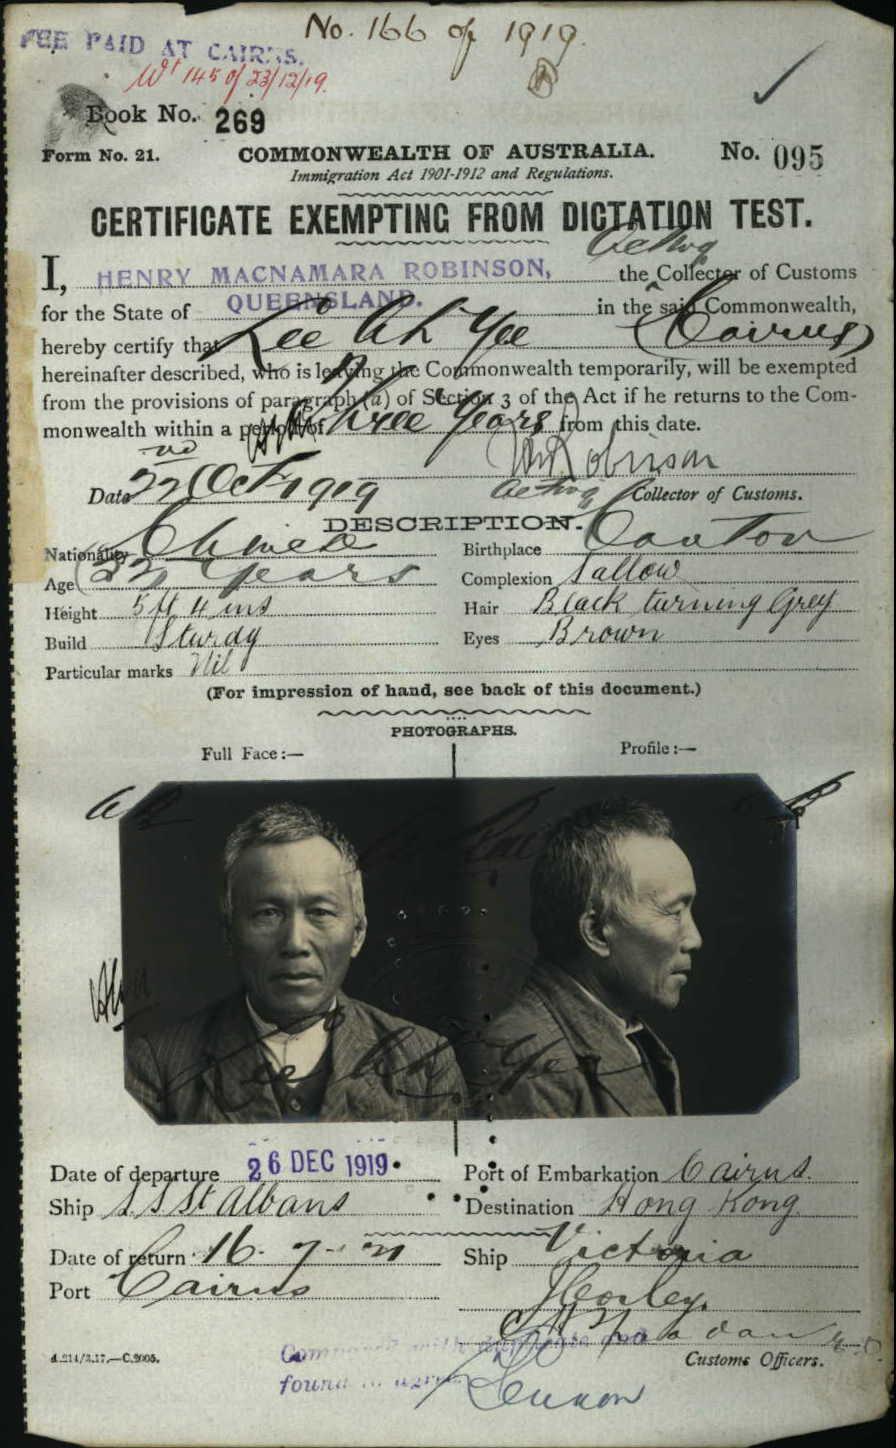 No. 166 of 1919.
FEE PAID AT CAIRNS.
Wt 145 of 23/12/19.
Book No. 269
Form No. 21. COMMONWEALTH OF AUSTRALIA. No. 095
Immigration Act 1901-1912 and Regulations.
CERTIFICATE EXEMPTING FROM DICTATION TEST.
Acting
I, HENRY MACNAMARA ROBINSON, the Collector of Customs
for the State of QUEENSLAND. in the said Commonwealth,
hereby certify that Lee Ah Yee (Cairns)
hereinafter described, who is leaving the Commonwealth temporarily, will be exempted
from the provisions of paragraph (a) of Section 3 of the Act if he returns to the Com-
monwealth within a period of Three Years from this date.
Robinson
Date 22nd Oct 1919 Acting Collector of Customs.
DESCRIPTION.
Nationality Chinese Birthplace Canton
Age Years Complexion Sallow
Height 5 ft 4 ins Hair Black turning Grey
Build Sturdy Eyes Brown
Particular marks Nil
(For impression of hand, see back of this document.)
PHOTOGRAPHS.
Full Face :— Profile :—
Lee Ah Yee
Date of departure 26 DEC 1919 Port of Embarkation Cairns.
Ship S.S St Albans Destination Hong Kong
Date of return 16-7-21 Ship Victoria
Port Cairns
Customs Officers.
d.214/3.17.—C.2005.
found to agree